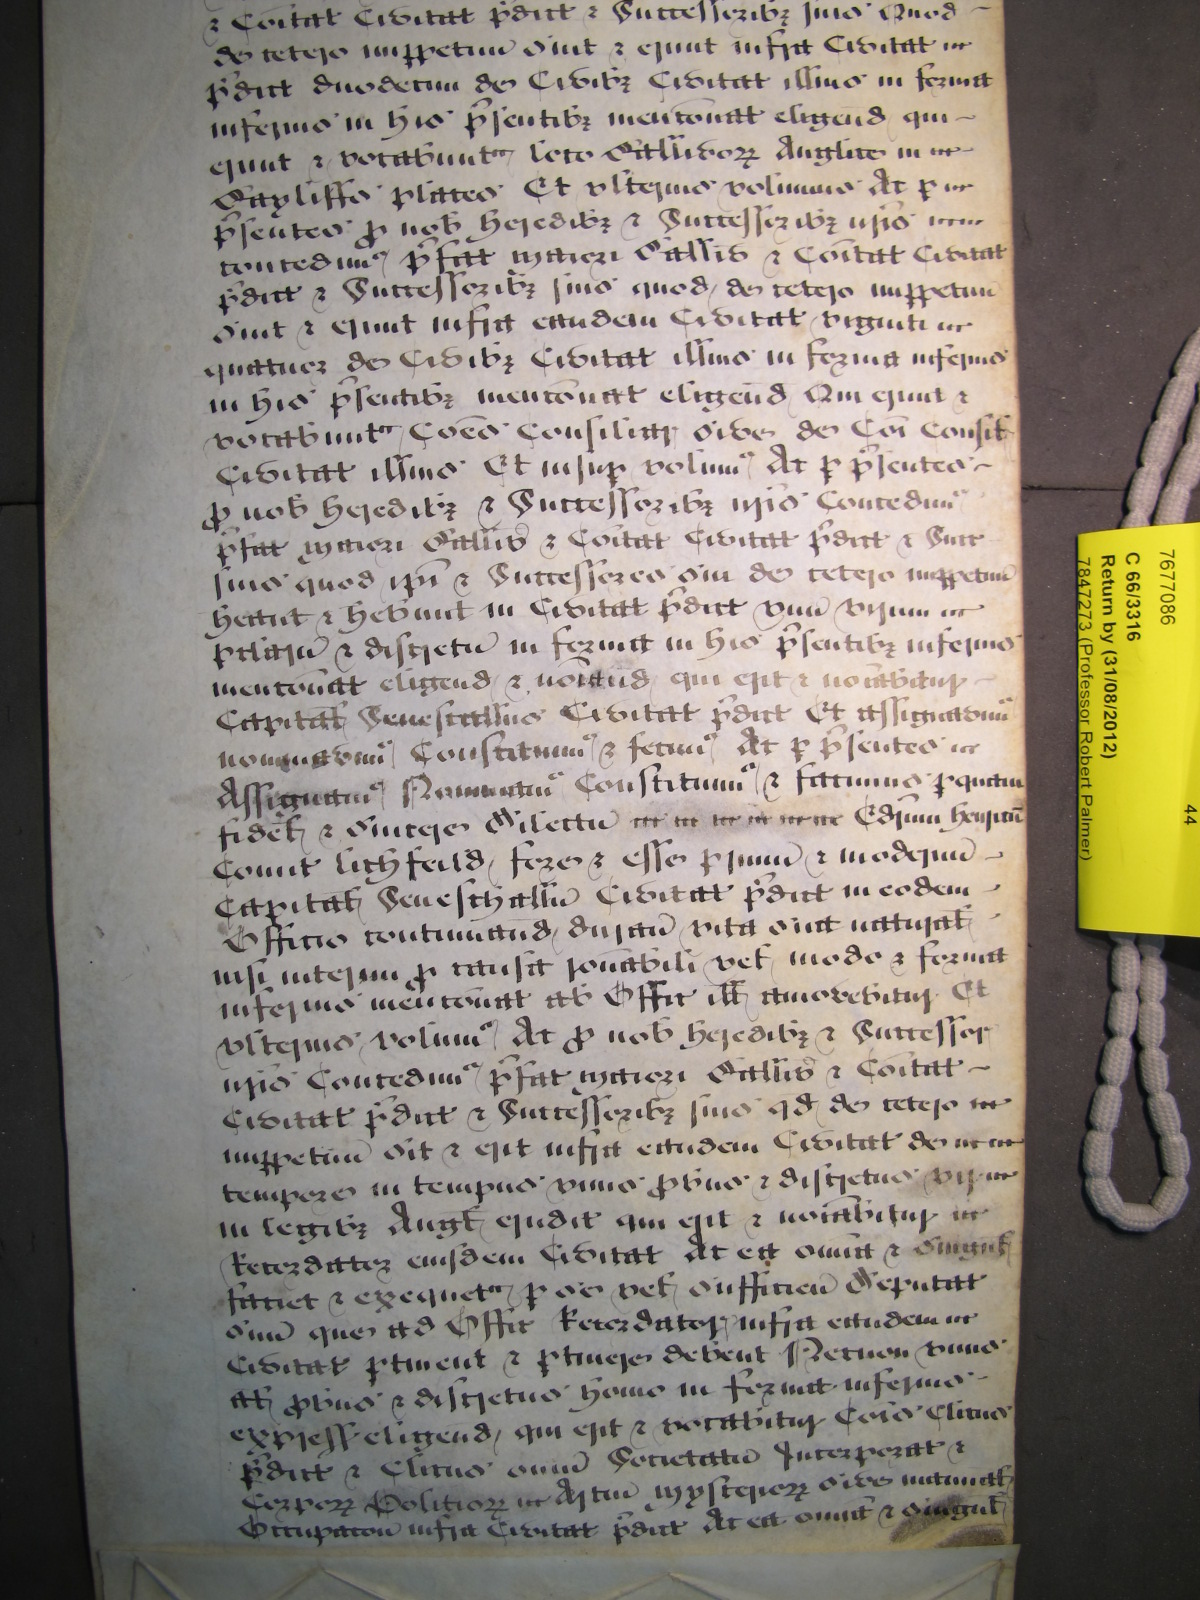 & Co͞itat Civitat p̄dict & Successoribȝ suis Quod
de cetero imppetuū sint & erunt infra Civitat
p̄dict duodecim de Civibȝ Civitat illius in forma
inferius in his p̄sentibȝ menc̄onat eligend qui
erunt & vocabuntʳ loco Ballivorꝝ Anglice in
Bayliffs places Et ulterius volumus Ac p
p̄sentes ꝓ nob̄ heredibȝ & Successoribȝ nr̄is
concedimꝰ p̄fat maiori Ballivis & Co͞itat Civitat
p̄dict & Successoribȝ suis quod de cetero imppetuū
sint & erunt infra eandem Civitat viginti
quatuor de Civibȝ Civitat illius in forma inferius
in his p̄sentibȝ menc̄onat eligend Qui erunt &
vocabuntʳ Co͞es Consiliar sive de Co͞i Consil
Civitat illius Et insup volumꝰ Ac p p̄sentes
ꝓ nob̄ heredibȝ & Successoribȝ nr̄is Concedimꝰ
p̄fat maiori Ballivis & Co͞itat Civitat p̄dict & Succ
suis quod ip̄i & Successores sui de cetero imppetuū
heant & hebunt in Civitat p̄dict unū virum
p̄clarū & discretū in forma in his p̄sentibȝ inferius
menc̄onat eligend & no͞iand qui erit & no͞iabitur
Capital Senescallus Civitat p̄dict Et assignavimꝰ
nominavimꝰ Constituimꝰ & fecimꝰ Ac p p̄sentes
Assignamꝰ Nominamꝰ Constituimꝰ & facimus p̄quam
fidel & Sincere Dilectū Edr̄um henricū
Comit lichfeild fore & esse primū & modernū
Capital Seneschallū Civitat p̄dict in eodem
Officio continuand durañ vita sua natural
nisi interim ꝓ causa ro͞nabili vel modo & forma
inferius menc̄onat ab Offic ill amovebitur Et
ulterius volumꝰ Ac ꝓ nob̄ heredibȝ & Successor
nr̄is Concedimꝰ p̄fat maiori Ballivis & Co͞itat
Civitat p̄dict & Successoribȝ suis qd de cetero
imppetuū sit & erit infra eandem Civitat de
tempore in tempus unus ꝓbus & discretus vir
in legibȝ Angl erudit qui erit & no͞iabitur
Recordator eiusdem Civitat Ac ea omīa & singul
faciet & exequetʳ p se vel sufficien Deputat
suū que ad Offic Recordator infra eandem
Civitat ptinent & ptinere debent Necnon unus
al ꝓbus & discretus homo in forma inferius
express eligend qui erit & vocabitur Co͞is Cl̄icus
p̄dict & Cl̄icus omiū Societatū Incorporat &
Corporꝝ Politicorꝝ Artiū mysteriorꝝ sive manual
Occupac̄onū infra Civitat p̄dict Ac ea omīa & singul
7677086
C 66/3316
Return by (31/08/2012)
7847273 (Professor Robert Palmer)
44